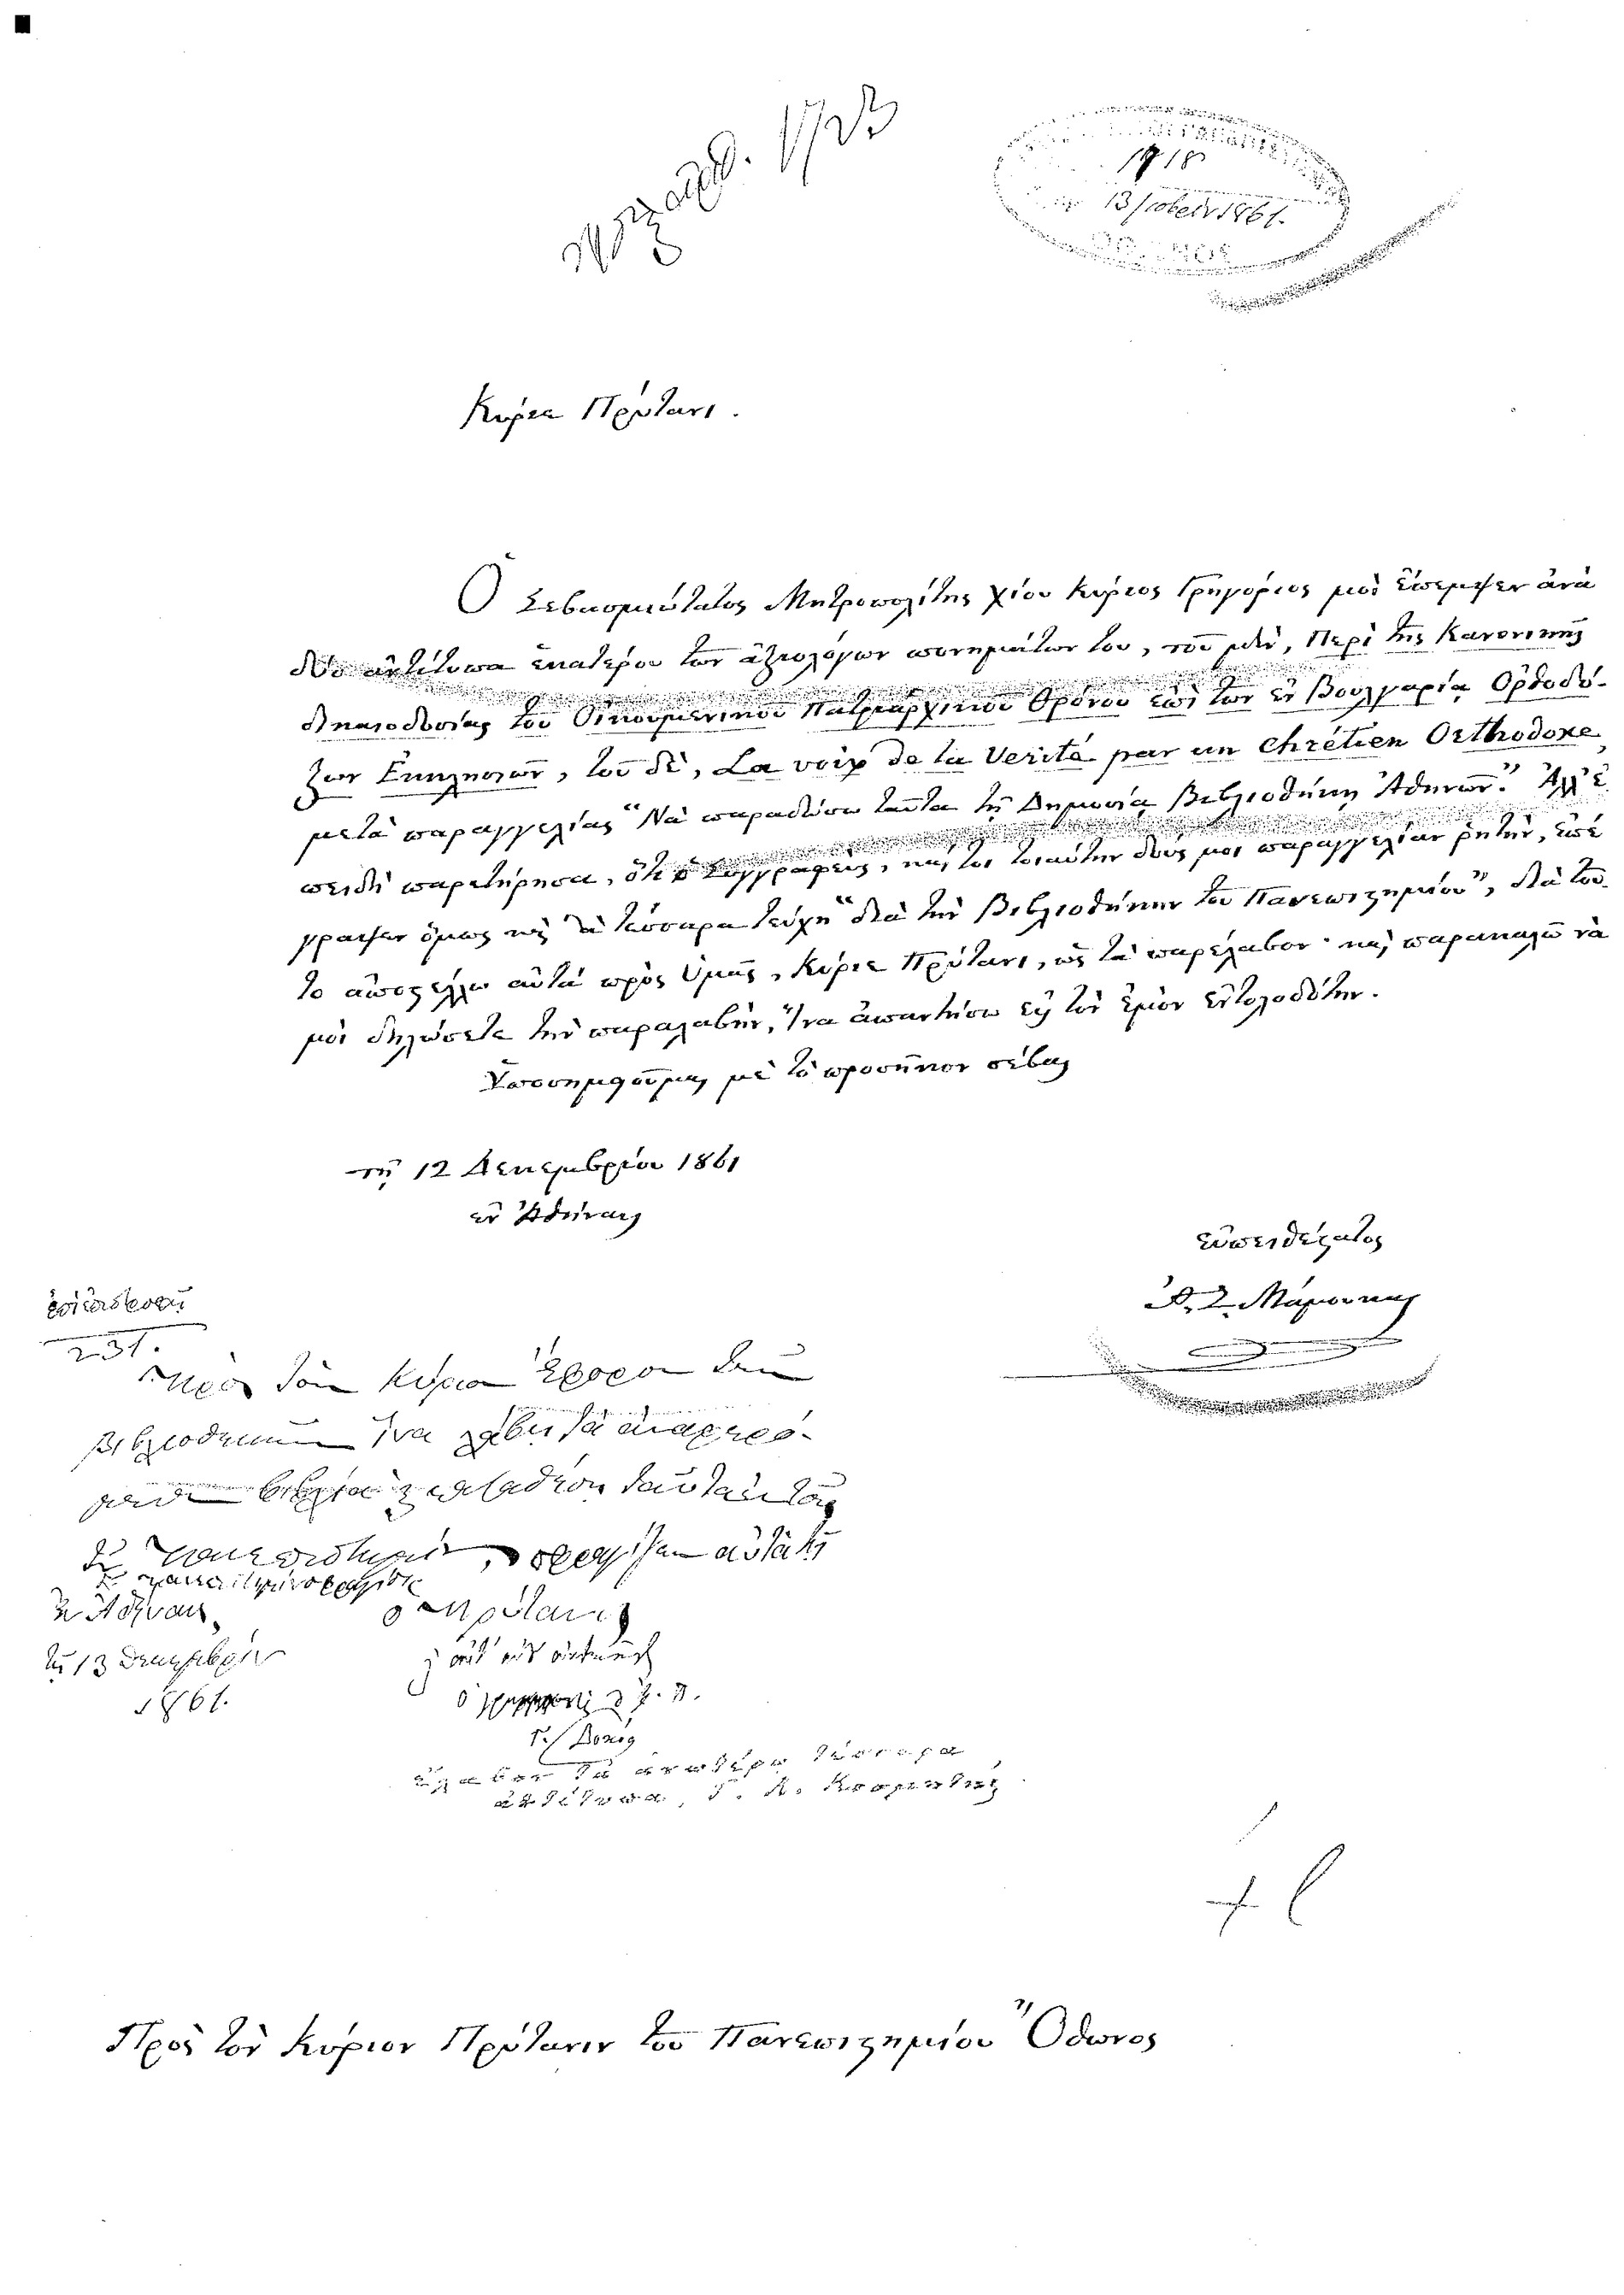 1918
13 /κοβρίου 1861.
Κύριε Πρύτανι.
Ὁ Σεβασμιώτατος Μητροπολίτης Χίου Κύριος Γρηγόριος μοὶ ἔπεμψεν ἀνὰ
δύο ἀντίτυπα ἑκατέρου τῶν ἀξιολόγων πονημάτων του, τοῦ μὲν, Περὶ τῆς Κανονικῆς
δικαιοδοσίας τοῦ Οἰκουμενικοῦ Πατριαρχικοῦ Θρόνου ἐπὶ τῶν ἐν Βουλγαρίᾳ Ὀρθοδό-
ξων Ἐκκλησιῶν, τοῦ δὲ, La voix de la Verité par un chrétien Orthodoxe,
μετὰ παραγγελίας "Νὰ παραδώσω ταῦτα τῇ Δημοσίᾳ Βιβλιοθήκῃ Ἀθηνῶν." Ἀλλ' ἐ
πειδὴ παρετήρησα, ὅτι ὁ Συγγραφεὺς, καί τοι τοιαύτην δούς μοι παραγγελίαν ῥητὴν, ἐπέ
γραψεν ὅμως εἰς τὰ τέσσαρα τεύχη "διὰ τὴν Βιβλιοθήκην τοῦ Πανεπιστημίου", διὰ τοῦ-
το ἀποστέλλω αὐτὰ πρὸς Ὑμᾶς, Κύριε Πρύτανι, ὡς τὰ παρέλαβον· καὶ παρακαλῶ νὰ
μοὶ δηλώσετε τὴν παραλαβὴν, ἵνα ἀπαντήσω εἰς τὸν ἐμὸν ἐντολοδότην.
Ὑποσημειοῦμαι μὲ τὸ προσῆκον σέβας
τῇ 12 Δεκεμβρίου 1861
ἐν Ἀθήναις
εὐπειθέστατος
Α. Ζ. Μάμουκας
231.
Πρὸς τὸν Κύριον Ἔφορον τῆς
βιβλιοθήκης ἵνα λάβῃ τὰ
βιβλία
τοῦ Πανεπιστημίου,
ἐν Ἀθήναις
τῇ 13 Δεκεμβρίου
1861.
ὁ Πρύτανις
ὁ
ἔλαβον τὰ ἀνωτέρω τέσσαρα
ἀντίτυπα, Γ. Κ.
Πρὸς τὸν Κύριον Πρύτανιν τοῦ Πανεπιστημίου Ὄθωνος